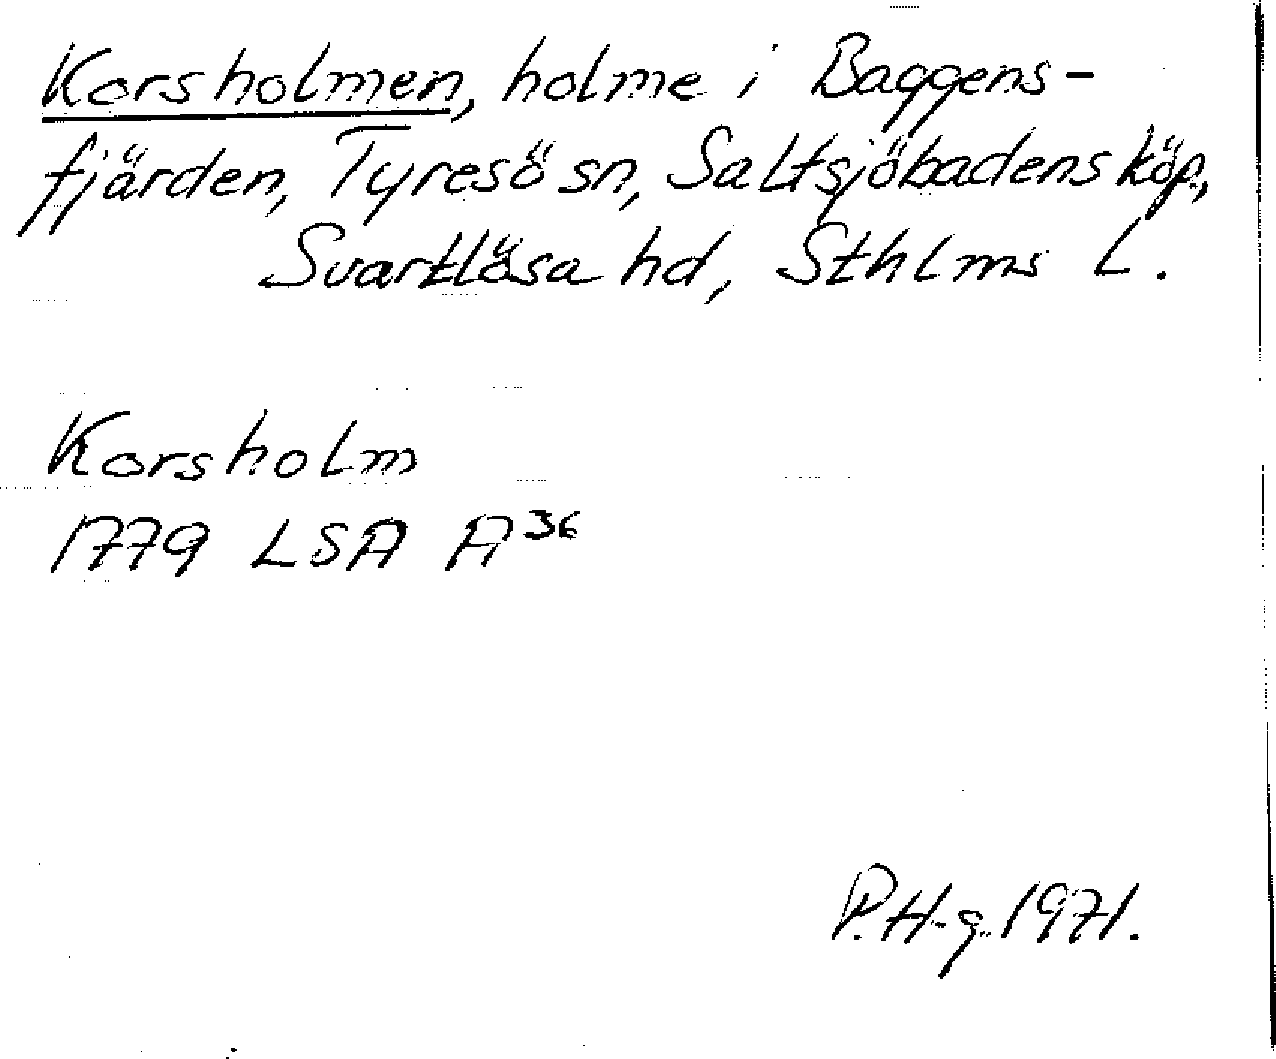 Korsholmen, holme i Baggens-
fjärden, Tyresö sn, Saltsjöbadens köp.,
Svartlösa hd, Sthlms l.
Korsholm
1779 LSA A36
P. H-g. 1971.